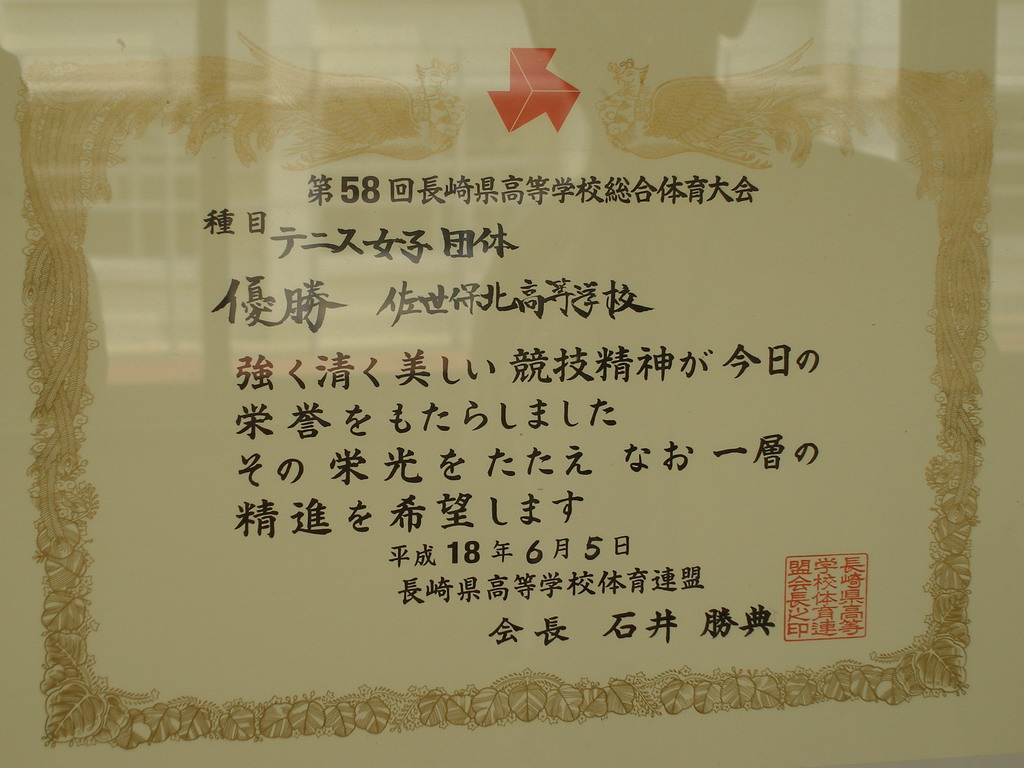 第58回長崎県高等学校総合体育大会
種目 テニス女子団体
優勝 佐世保北高等学校
強く清く美しい競技精神が今日の
栄誉をもたらしました
その栄光をたたえ なお一層の
精進を希望します
平成18年6月5日
長崎県高等学校体育連盟
会長 石井 勝典
長崎県高等
学校体育連
盟会長之印